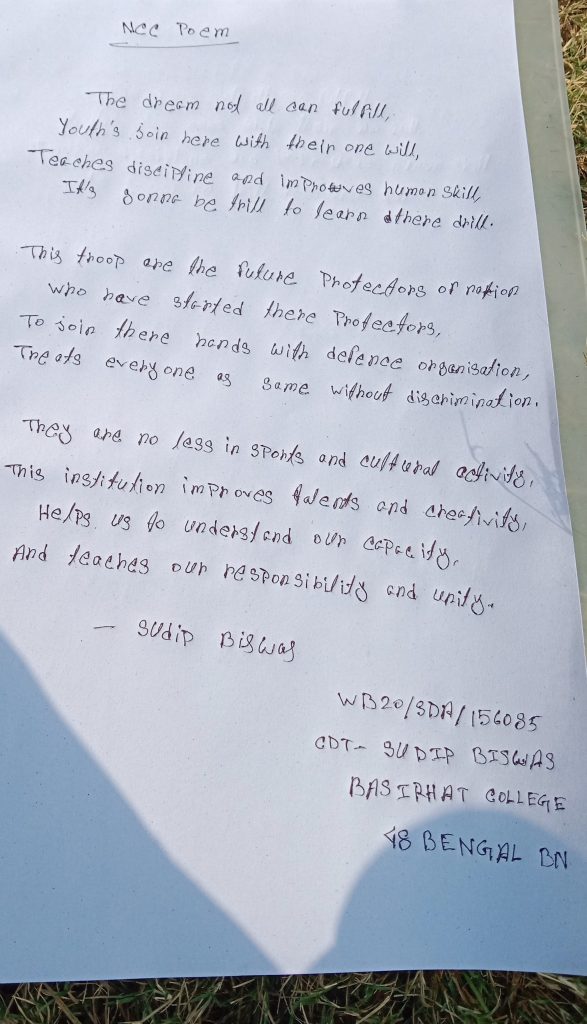 NCC Poem
The dream not all can fulfill,
Youth's join here with their one will,
Teaches discipline and improves human skill,
It's gonna be thrill to learn there drill.
This troop are the future Protectors of nation
who have started there Protectors,
To join there hands with defence organisation,
Treats everyone as same without discrimination.
They are no less in sports and cultural activity,
This institution improves talents and creativity,
Helps us to understand our capacity,
And teaches our responsibility and unity.
- Sudip Biswas
WB20/SDA/156085
CDT- SUDIP BISWAS
BASIRHAT COLLEGE
48 BENGAL BN